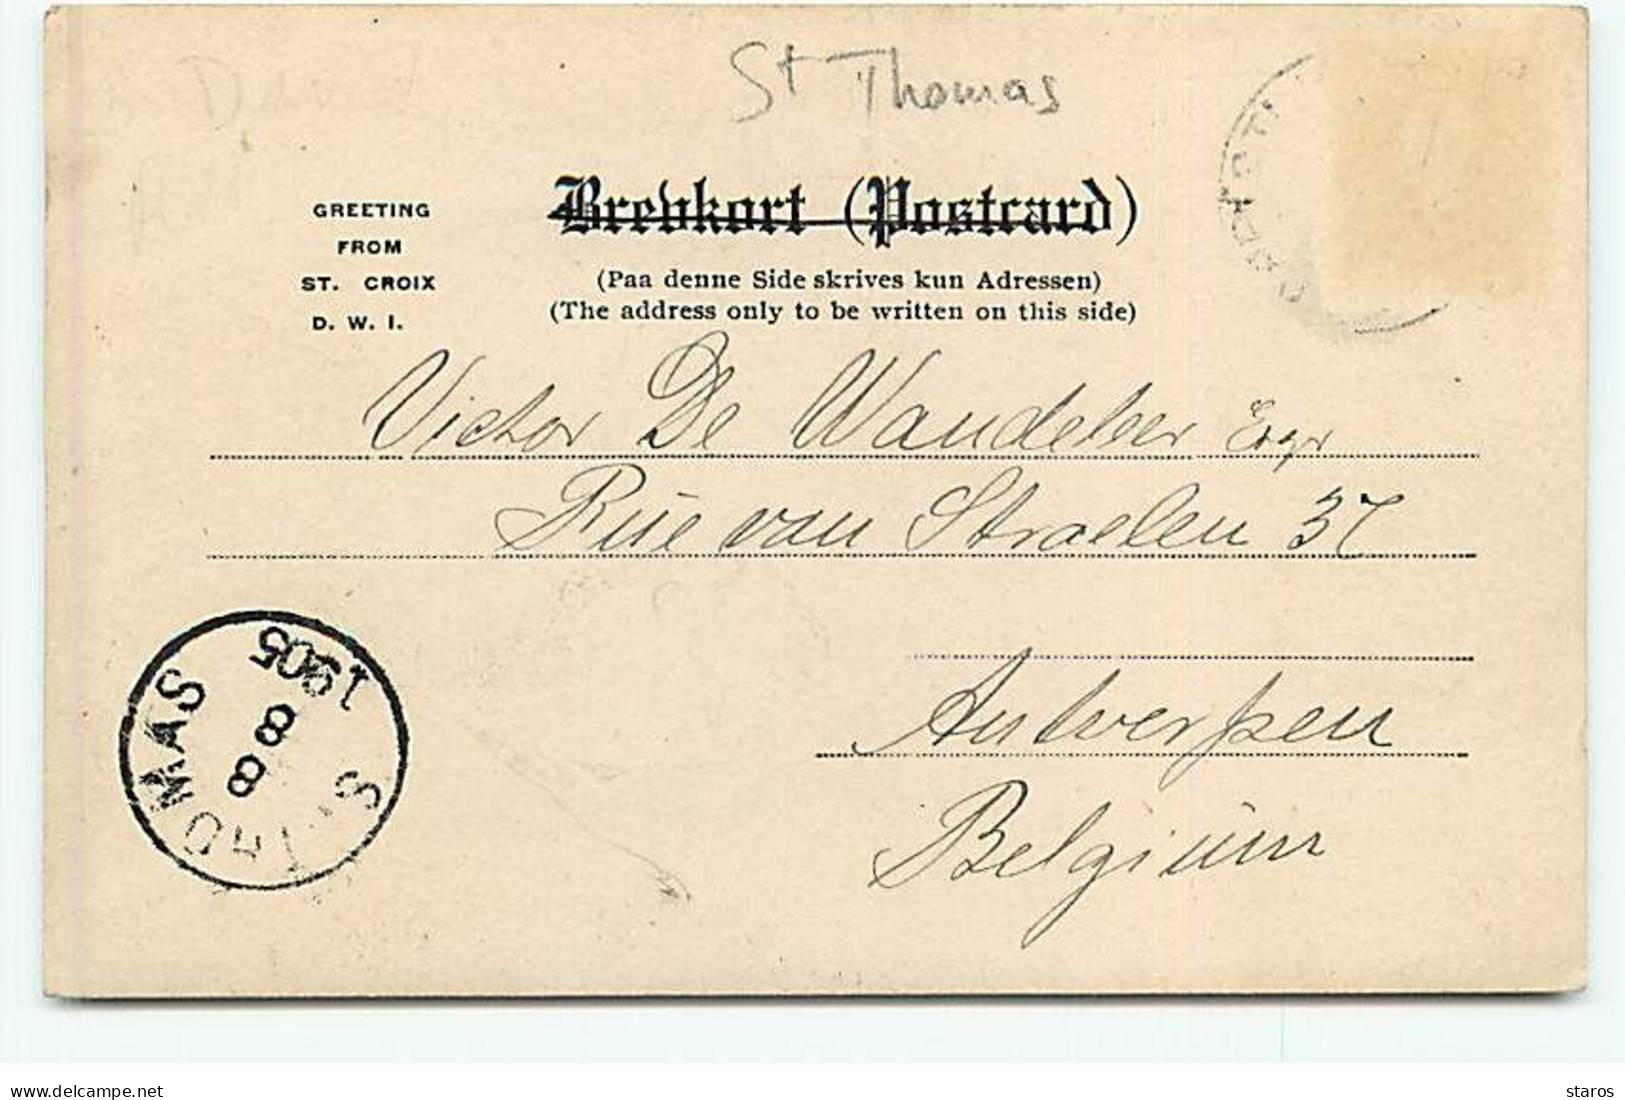 St Thomas
GREETING
FROM
ST. CROIX
D. W. I.
Brevkort (Postcard)
(Paa denne Side skrives kun Adressen)
(The address only to be written on this side)
Victor De Wandeleer Esqr
Rue van Straelen 37
Antwerpen
Belgium
ST. THOMAS
8 8
1905
www.delcampe.net
staros